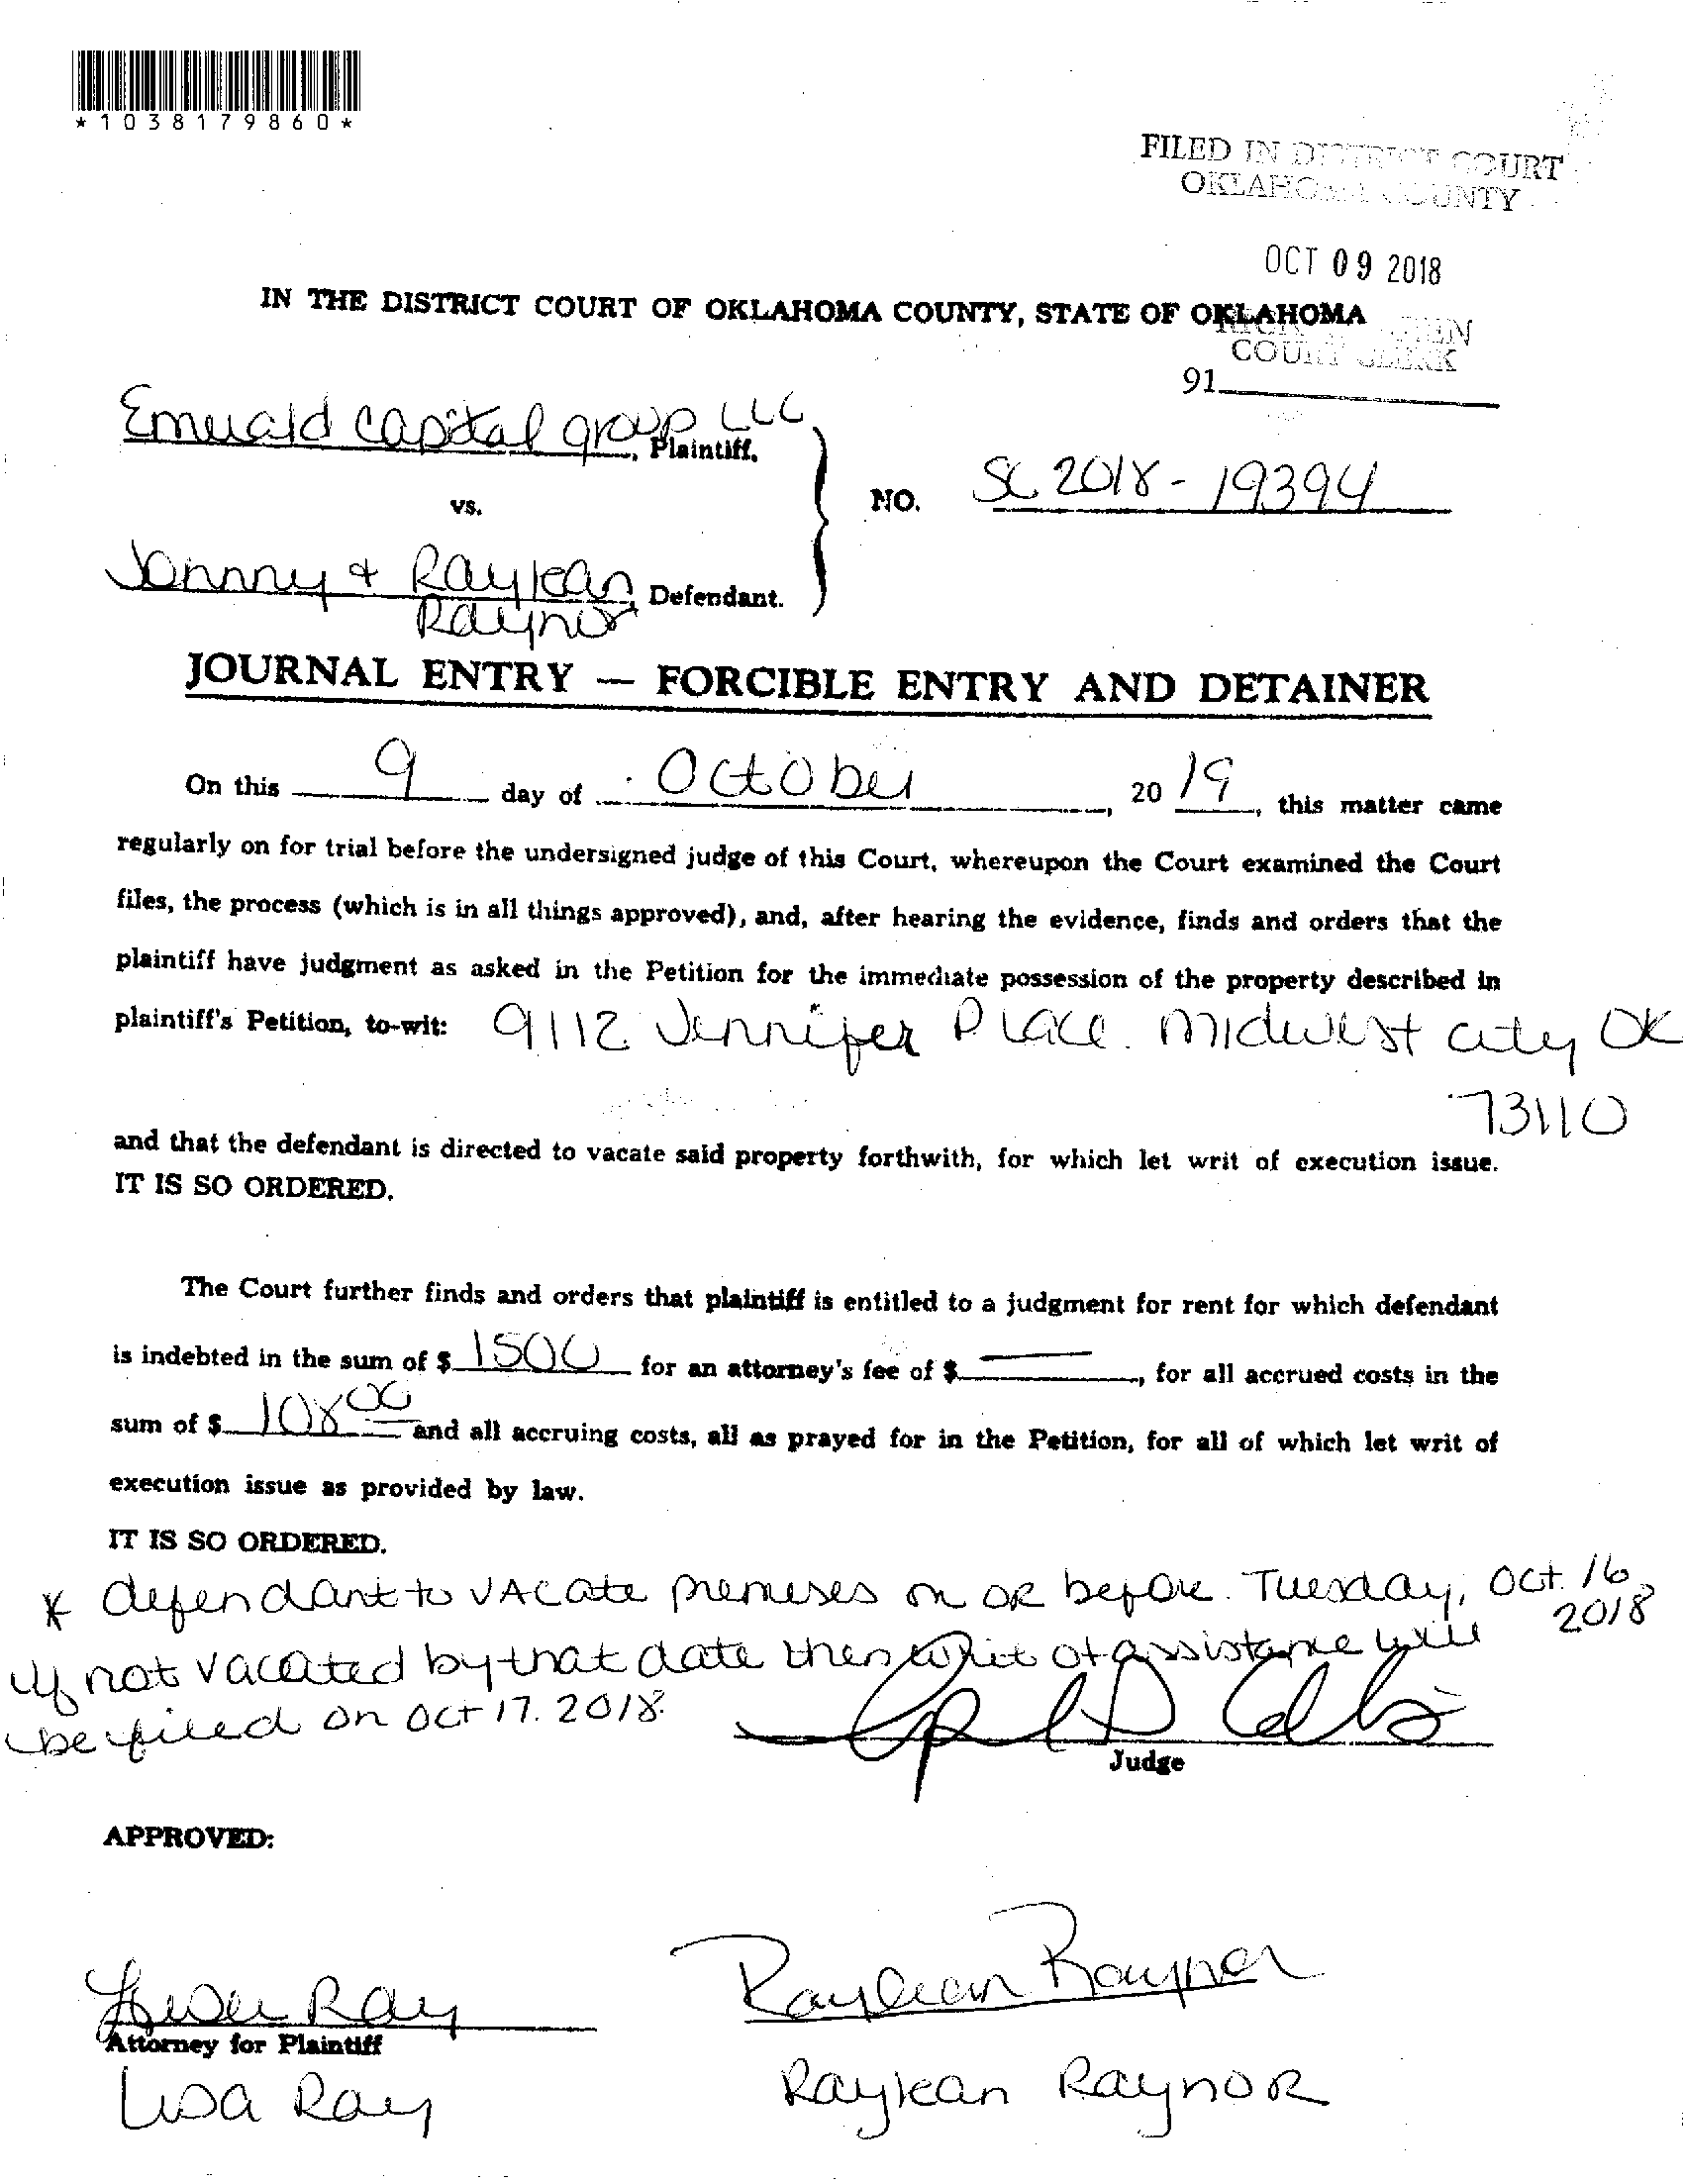 *1038179860*
FILED IN DISTRICT COURT
OKLAHOMA COUNTY
OCT 09 2018
IN THE DISTRICT COURT OF OKLAHOMA COUNTY, STATE OF OKLAHOMA
COURT CLERK
91
Emerald Capital group LLC
, Plaintiff,
vs.
NO. SC 2018-19394
Jonnny & Raylean
Raynor
, Defendant.
JOURNAL ENTRY — FORCIBLE ENTRY AND DETAINER
On this 9 day of October, 20 19, this matter came
regularly on for trial before the undersigned judge of this Court, whereupon the Court examined the Court
files, the process (which is in all things approved), and, after hearing the evidence, finds and orders that the
plaintiff have judgment as asked in the Petition for the immediate possession of the property described in
plaintiff's Petition, to-wit: 9112 Jennifer Place. Midwest City OK
73110
and that the defendant is directed to vacate said property forthwith, for which let writ of execution issue.
IT IS SO ORDERED.
The Court further finds and orders that plaintiff is entitled to a judgment for rent for which defendant
is indebted in the sum of $ 1500 for an attorney's fee of $ —, for all accrued costs in the
sum of $ 108 00 and all accruing costs, all as prayed for in the Petition, for all of which let writ of
execution issue as provided by law.
IT IS SO ORDERED.
* defendant to VACate premises on OR before. Tuesday, Oct. 16,
2018
if not vacated by that date then writ of assistance will
be filed on Oct 17. 2018.
Judge
APPROVED:
Lisa Ray
Raylean Raynor
Attorney for Plaintiff
Lisa Ray
Raylean RaynoR